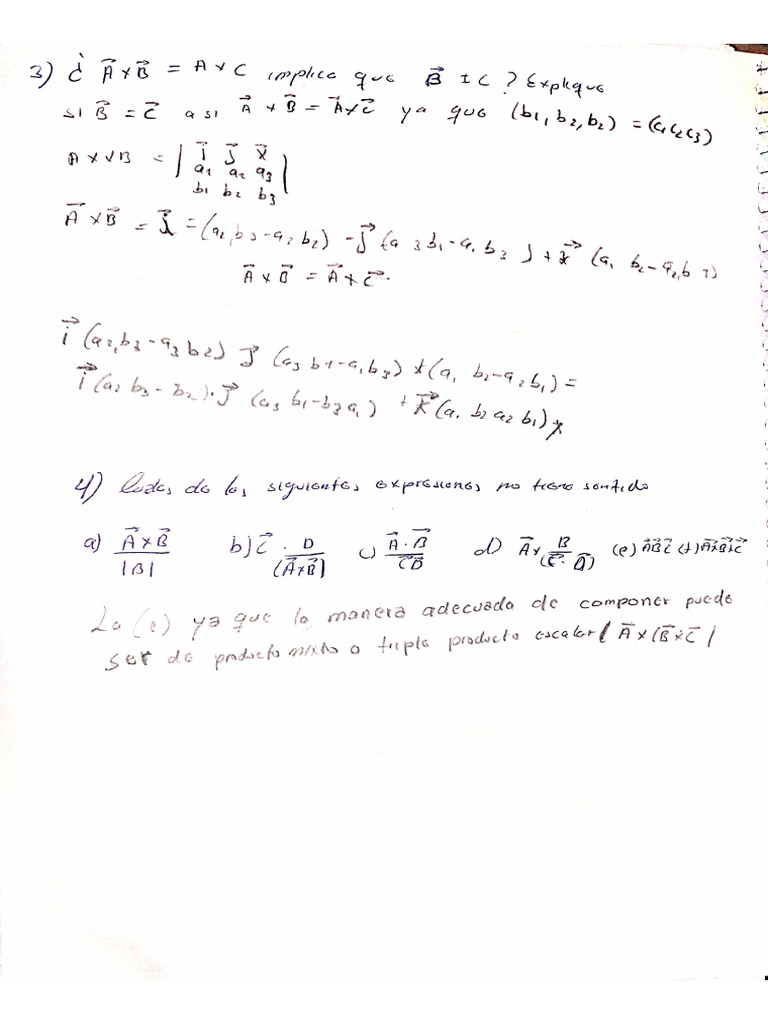 3) ¿ A⃗ x B⃗ = A x C implica que B⃗ = C ? Explique
si B⃗ = C⃗ asi A⃗ x B⃗ = A⃗ x C⃗ ya que (b1, b2, b2) = (c1 c2 c3)
A x x B = | i⃗ j⃗ k⃗
a1 a2 a3 |
b1 b2 b3
A⃗ x B⃗ = i⃗ = (a2, b3 - a2 b2) - j⃗ (a 3 b1 - a1 b3 ) + k⃗ (a1 b2 - a2, b 1)
A⃗ x B⃗ = A⃗ x C⃗.
i⃗ (a2, b3 - a3 b2) j⃗ (a3 b1 - a1 b3) k (a1 b2 - a2 b1) =
i⃗ (a2 b3 - b2). j⃗ (a3 b1 - b3 a1) + k⃗ (a1 b2 a2 b1)
4) de las siguientes expresiones no tiene sentido
a) A⃗ x B⃗ / |B| b) C⃗ . D / (A⃗ x B⃗) c) A⃗ . B⃗ / C⃗D⃗ d) A⃗ x B / (C⃗ . D⃗) (e) A⃗B⃗C⃗ (f) A⃗xB⃗xC⃗
La (e) ya que la manera adecuada de componer puede
ser de producto mixto o triple producto escalar ( A⃗ x (B⃗ x C⃗ )